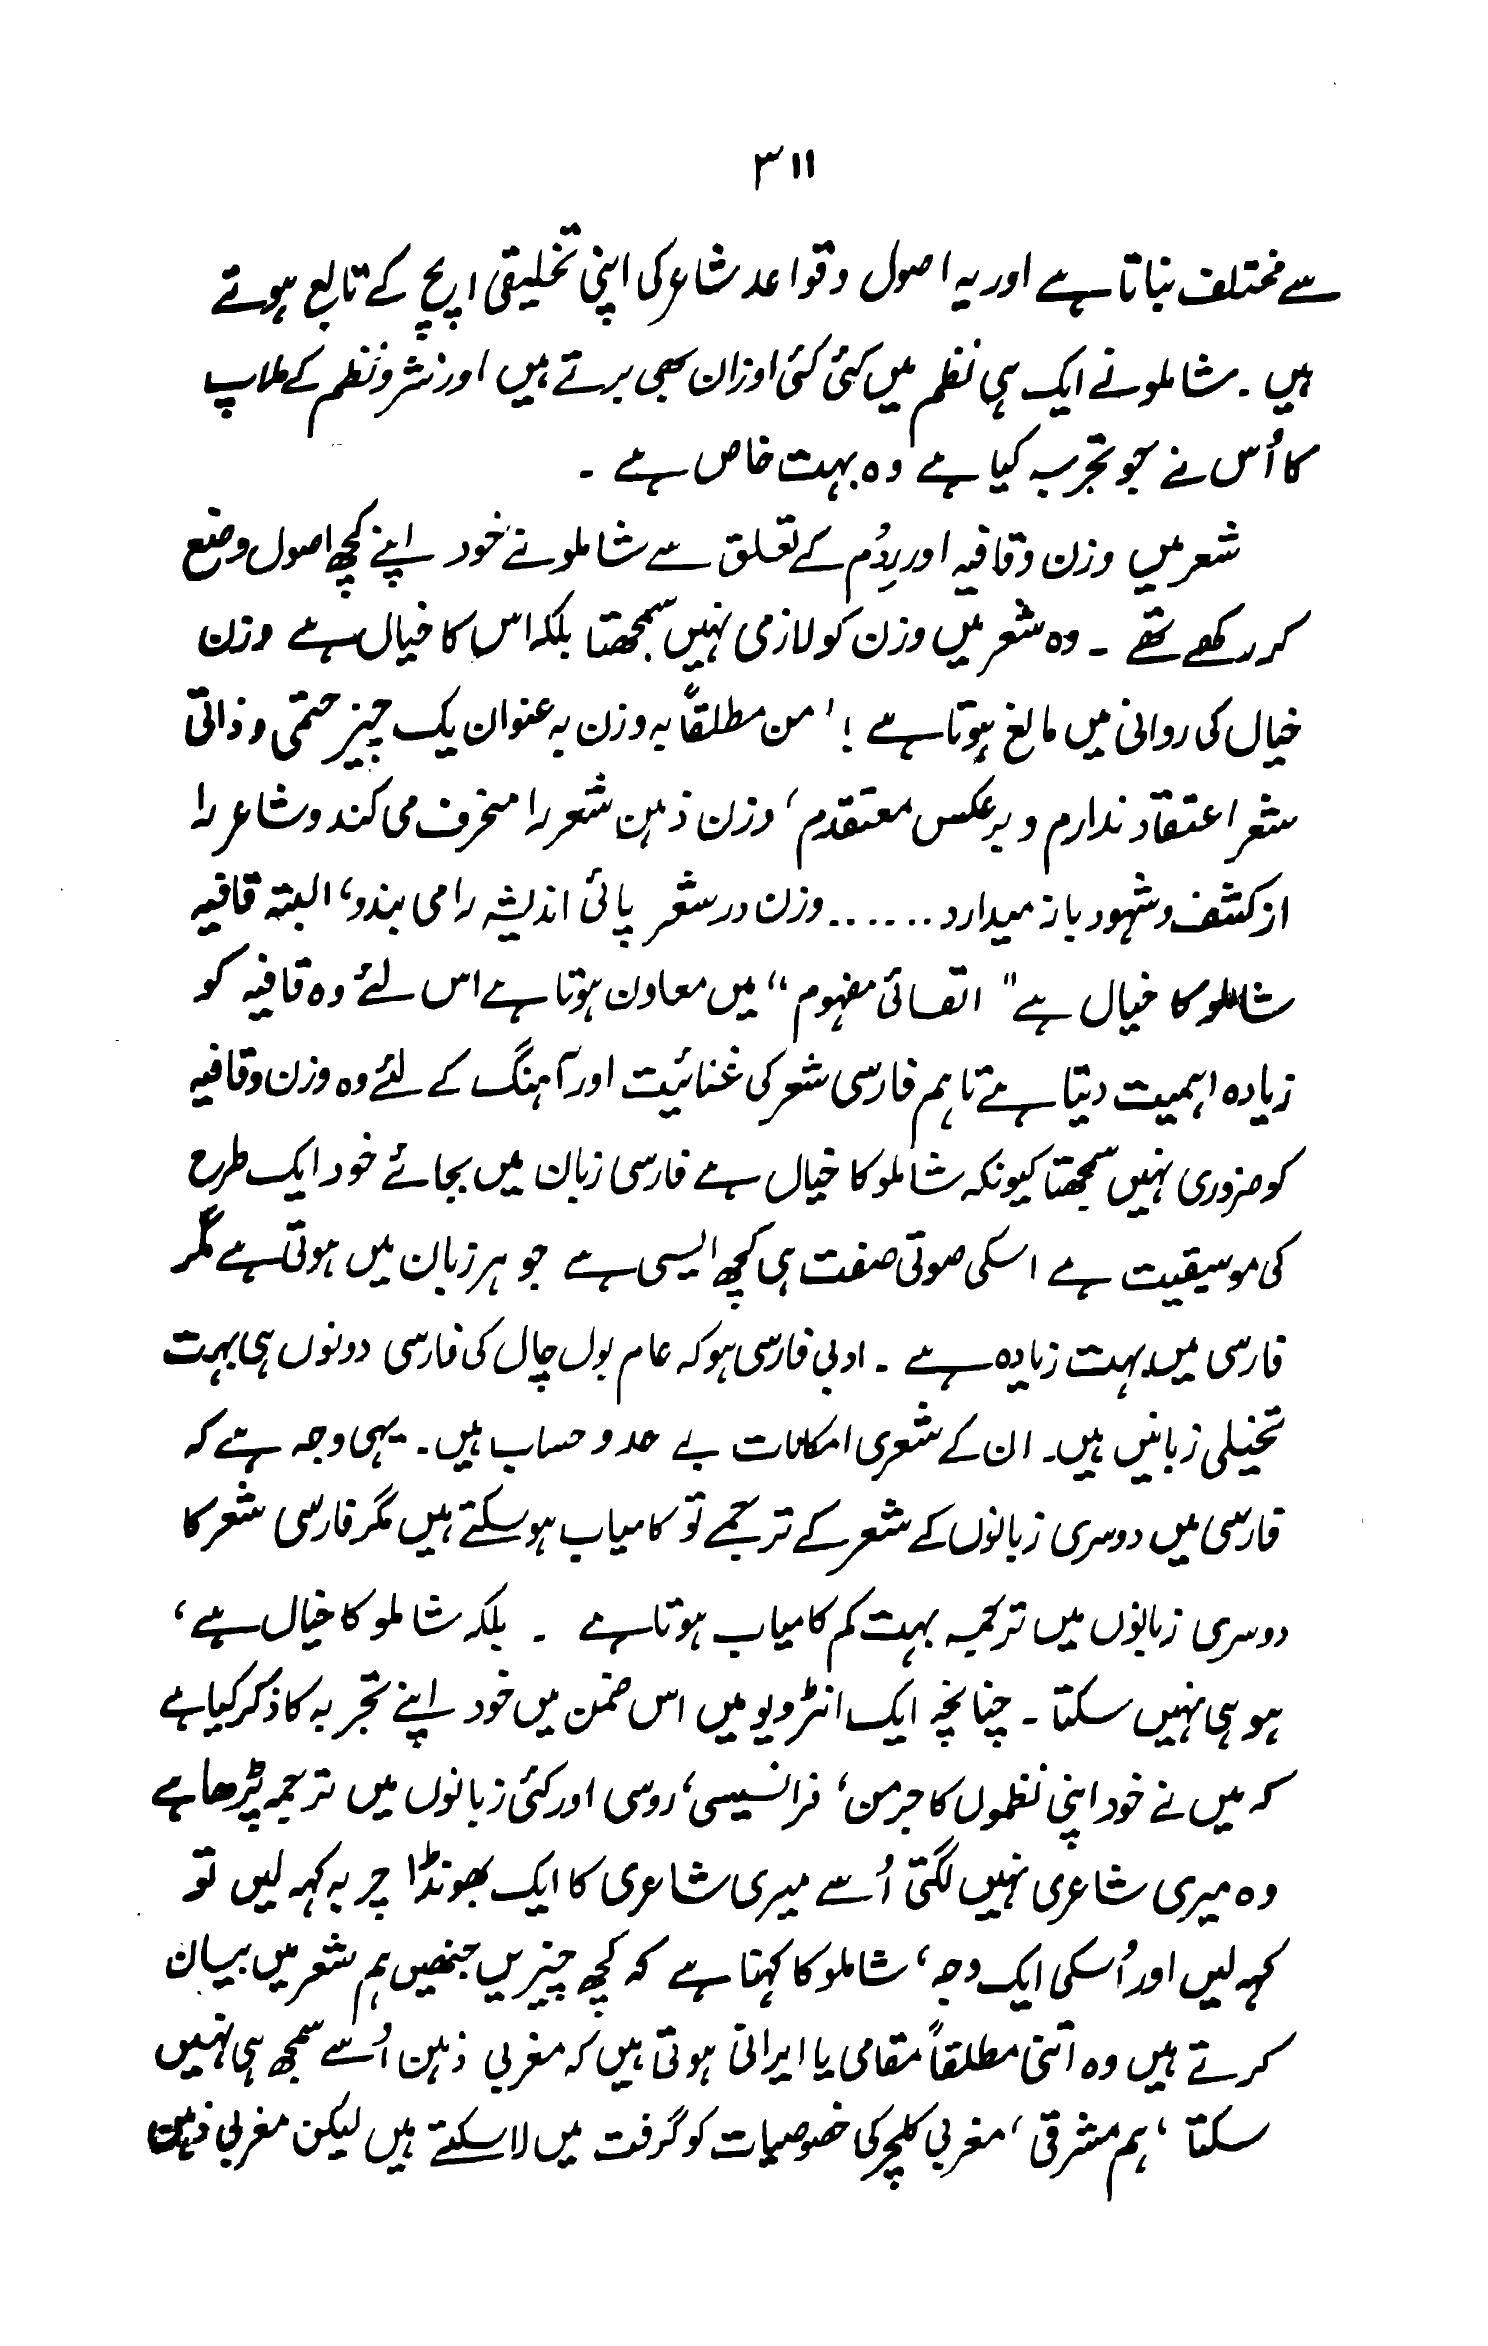 ۳۱۱
سے مختلف بناتا ہے اور یہ اصول و قواعد شاعر کی اپنی تخلیقی اپج کے تابع ہوتے
ہیں ۔ شاملو نے ایک ہی نظم میں کئی کئی اوزان بھی برتے ہیں اور نثر و نظم کے ملاپ
کا اُس نے جو تجربہ کیا ہے وہ بہت خاص ہے ۔
شعر میں وزن و قافیہ اور رِدُم کے تعلق سے شاملو نے خود اپنے کچھ اصول وضع
کر رکھے تھے ۔ وہ شعر میں وزن کو لازمی نہیں سمجھتا بلکہ اس کا خیال ہے وزن
خیال کی روانی میں مانع ہوتا ہے ! ' من مطلقاً بہ وزن بہ عنوان یک چیز حتمی و ذاتی
شعر اعتقاد ندارم و برعکس معتقدم ‘ وزن ذہن شعر را منحرف می کند و شاعر را
از کشف و شہود باز میدارد ...... وزن در شعر پائی اندیشہ را می بندد‘ البتہ قافیہ
شاملو کا خیال ہے " القائی مفہوم “ میں معاون ہوتا ہے اس لئے وہ قافیہ کو
زیادہ اہمیت دیتا ہے تاہم فارسی شعر کی غنائیت اور آہنگ کے لئے وہ وزن و قافیہ
کو ضروری نہیں سمجھتا کیونکہ شاملو کا خیال ہے فارسی زبان میں بجائے خود ایک طرح
کی موسیقیت ہے اسکی صوتی صفت ہی کچھ ایسی ہے جو ہر زبان میں ہوتی ہے مگر
فارسی میں بہت زیادہ ہے ۔ ادبی فارسی ہو کہ عام بول چال کی فارسی دونوں ہی بہت
تخیلی زبانیں ہیں۔ ان کے شعری امکانات بے حد و حساب ہیں۔ یہی وجہ ہے کہ
فارسی میں دوسری زبانوں کے شعر کے ترجمے تو کامیاب ہو سکتے ہیں مگر فارسی شعر کا
دوسری زبانوں میں ترجمہ بہت کم کامیاب ہوتا ہے ۔ بلکہ شاملو کا خیال ہے ‘
ہو ہی نہیں سکتا ۔ چنانچہ ایک انٹرویو میں اس ضمن میں خود اپنے تجربہ کا ذکر کیا ہے
کہ میں نے خود اپنی نظموں کا جرمن ‘ فرانسیسی‘ روسی اور کئی زبانوں میں ترجمہ پڑھا ہے
وہ میری شاعری نہیں لگتی اُسے میری شاعری کا ایک بھونڈا چربہ کہہ لیں تو
کہہ لیں اور اُسکی ایک وجہ ‘ شاملو کا کہنا ہے کہ کچھ چیزیں جنھیں ہم شعر میں بیان
کرتے ہیں وہ اتنی مطلقاً مقامی یا ایرانی ہوتی ہیں کہ مغربی ذہن اُسے سمجھ ہی نہیں
سکتا ‘ ہم مشرقی ‘ مغربی کلچر کی خصوصیات کو گرفت میں لا سکتے ہیں لیکن مغربی ذہن